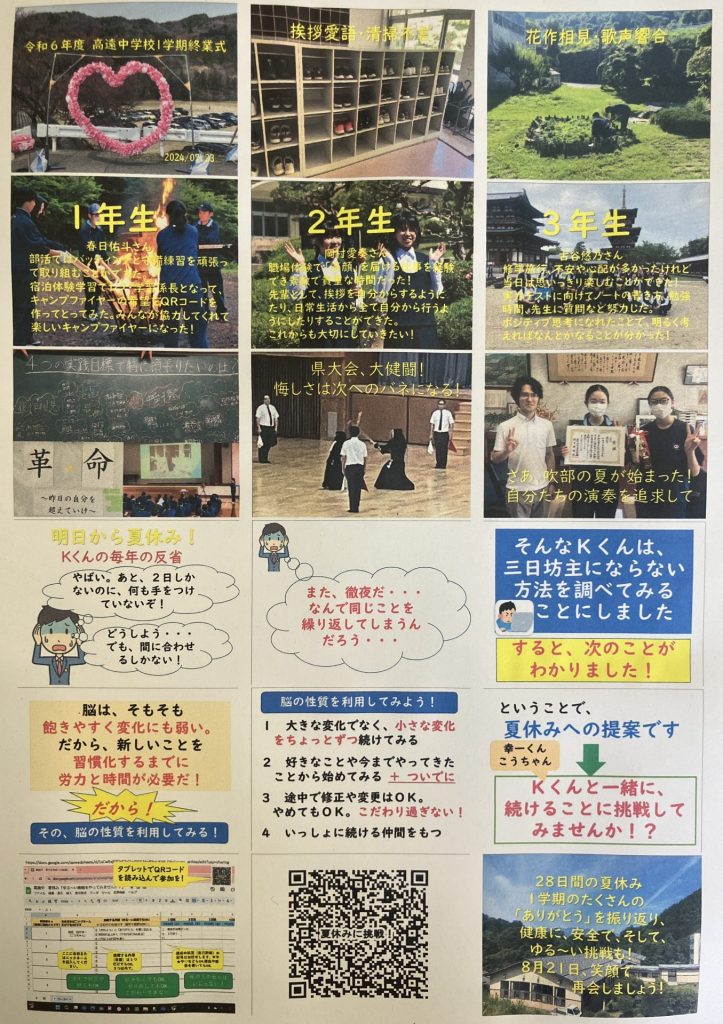 令和６年度 高遠中学校1学期終業式
挨拶愛語・清掃
花作相見・歌声響合
１年生
春日佑斗さん
って取り組むことができた。
キャンプファイヤーの
作ってとってみた。みんなが協力してくれて
楽しいキャンプファイヤーになった！
２年生
職場体験で「笑顔」を届ける
先輩として、挨拶を自分からするように
たり、日常生活から全て自分から行うよ
うにしたりすることができた。
これからも大切にしていきたい！
３年生
古谷悠乃さん
修学旅行、不安や心配が多かったけれど
当日は思いっきり楽しむことができた！
時間、先生に質問など努力した。
ポジティブ思考になれたことで、明るく考
えればなんとかなることが分かった！
４つの実践目標で特に頑張りたいのは？
革命
～昨日の自分を
超えていけ～
県大会、大健闘！
悔しさは次へのバネになる！
さあ、吹部の夏が始まった！
自分たちの演奏を追求して
明日から夏休み！
Ｋくんの毎年の反省
やばい。あと、２日しか
ないのに、何も手をつけ
ていないぞ！
どうしよう・・・
でも、間に合わせ
るしかない！
また、徹夜だ・・・
なんで同じことを
繰り返してしまうん
だろう・・・
そんなＫくんは、
三日坊主にならない
方法を調べてみる
ことにしました
すると、次のことが
わかりました！
脳は、そもそも
飽きやすく変化にも弱い。
だから、新しいことを
習慣化するまでに
労力と時間が必要だ！
だから！
その、脳の性質を利用してみる！
脳の性質を利用してみよう！
１ 大きな変化でなく、小さな変化
をちょっとずつ続けてみる
２ 好きなことや今までやってきた
ことから始めてみる ＋ ついでに
３ 途中で修正や変更はOK。
やめてもOK。こだわり過ぎない！
４ いっしょに続ける仲間をもつ
ということで、
夏休みへの提案です
幸一くん
こうちゃん
Ｋくんと一緒に、
続けることに挑戦して
みませんか！？
タブレットでQRコード
を読み込んで参加を！
夏休みに挑戦
28日間の夏休み
1学期のたくさんの
「ありがとう」を振り返り、
健康に、安全で、そして、
ゆる～い挑戦も！
8月21日、笑顔で
再会しましょう！